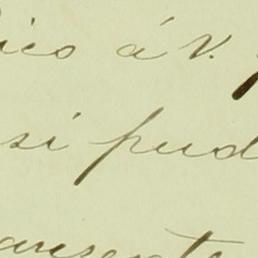 ico á V.
si pud
ausente